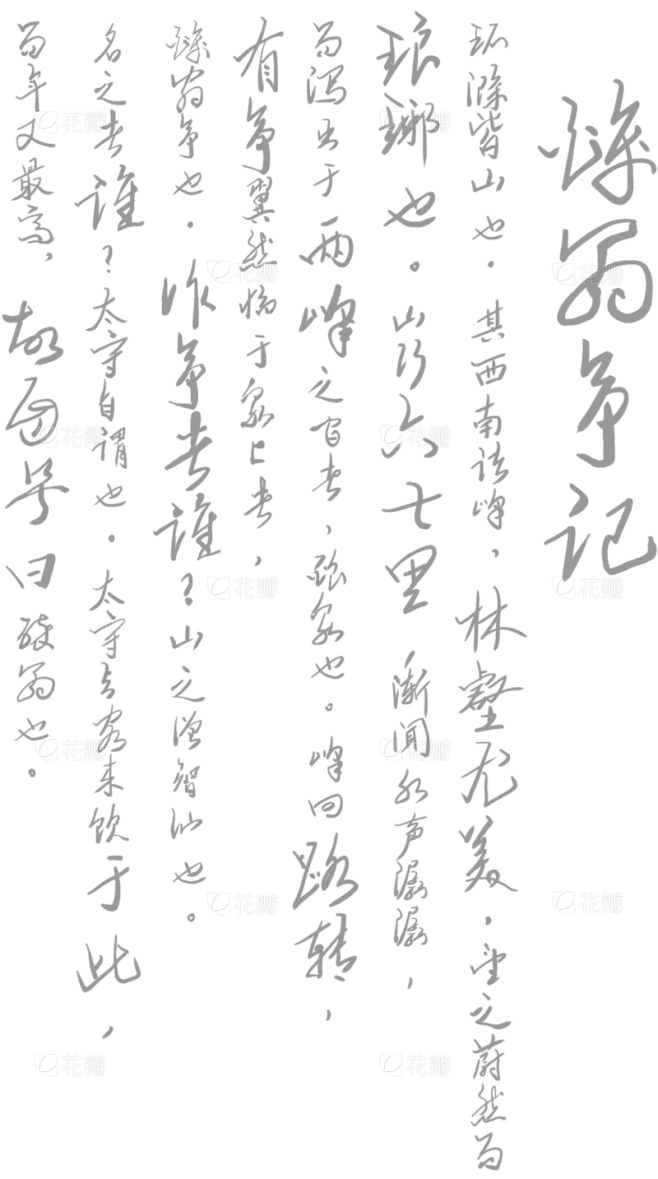 醉翁亭记
环滁皆山也。其西南诸峰,林壑尤美,望之蔚然而
琅琊也。山行六七里,渐闻水声潺潺,
而泻出于两峰之间者,酿泉也。峰回路转,
有亭翼然临于泉上者,
醉翁亭也。作亭者谁?山之僧智仙也。
名之者谁?太守自谓也。太守与客来饮于此,
而年又最高,故自号曰醉翁也。
花瓣
花瓣
花瓣
花瓣
花瓣
花瓣
花瓣
花瓣
花瓣
花瓣
花瓣
花瓣
花瓣
花瓣